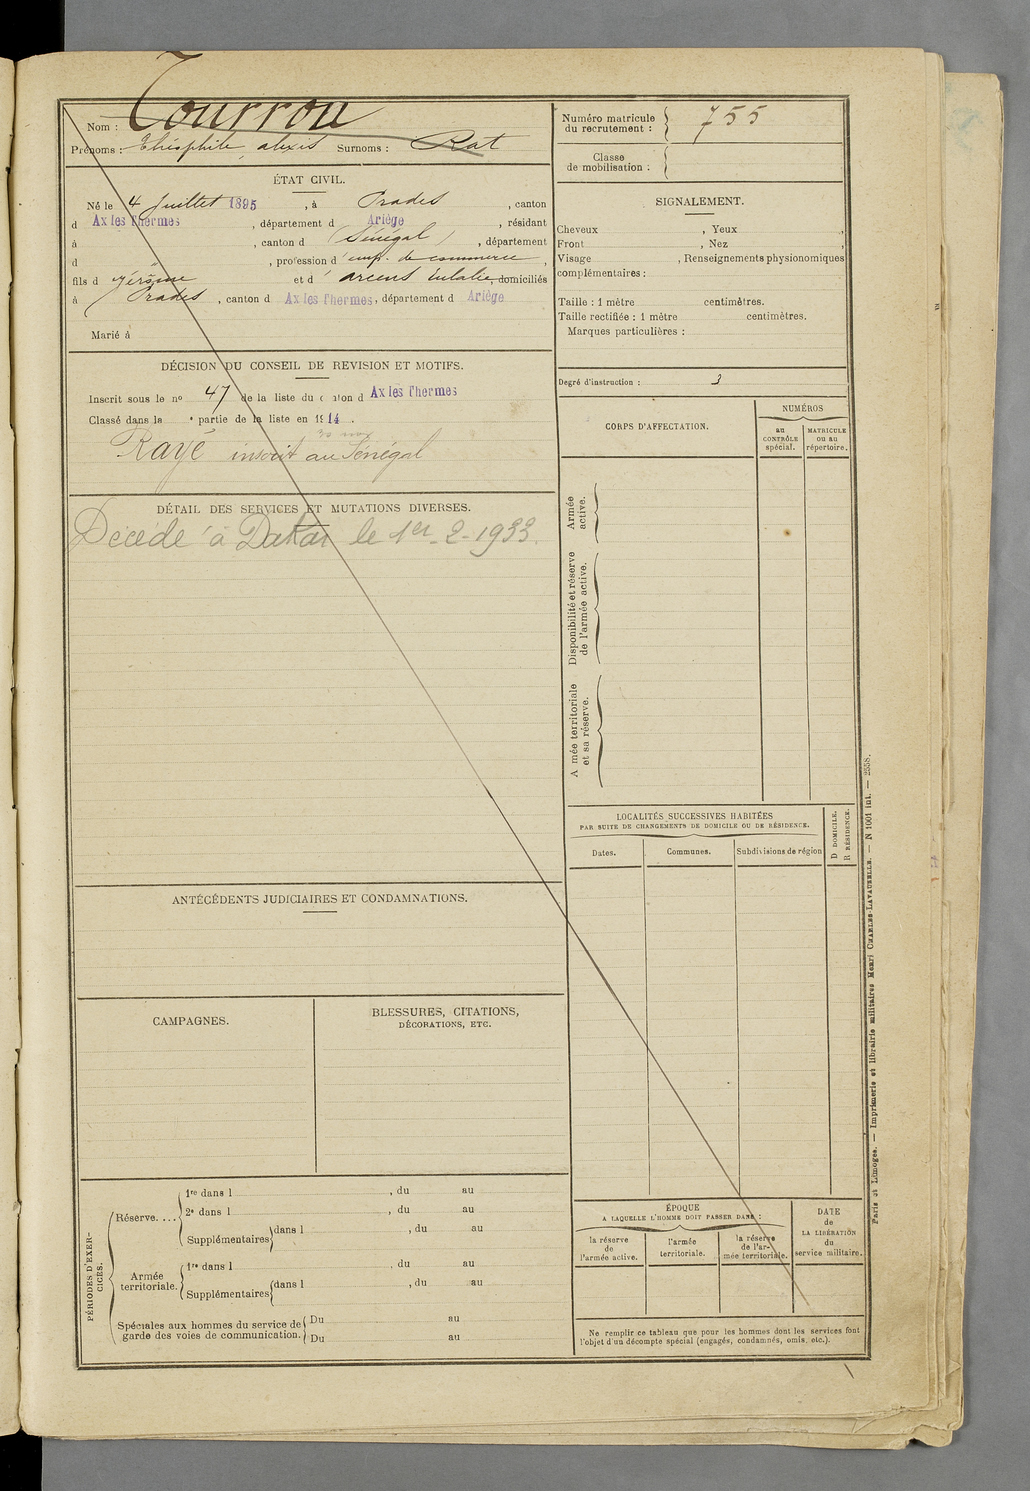 Nom : Tourrou
Prénoms : Théophile, alexis Surnoms : Rat
ÉTAT CIVIL.
Né le 4 Juillet 1895, à Prades, canton
d Ax les Thermes, département d Ariège, résidant
à , canton d (Sénégal), département
d , profession d'emp. de commerce,
fils d Jérôme et d' arcens Eulalie, domiciliés
à Prades, canton d Ax les Thermes, département d Ariège
Marié à
DÉCISION DU CONSEIL DE REVISION ET MOTIFS.
Inscrit sous le no 47 de la liste du canton d Ax les Thermes
Classé dans le partie de la liste en 1914.
Rayé inscrit au Sénégal
DÉTAIL DES SERVICES ET MUTATIONS DIVERSES.
Décédé à Dakar le 1er-2-1933.
ANTÉCÉDENTS JUDICIAIRES ET CONDAMNATIONS.
CAMPAGNES.
BLESSURES, CITATIONS,
DÉCORATIONS, ETC.
PÉRIODES D'EXER-
CICES.
Réserve....
1re dans l , du au
2e dans l , du au
Supplémentaires dans l , du au
Armée
territoriale.
1re dans l , du au
Supplémentaires dans l , du au
Spéciales aux hommes du service de
garde des voies de communication.
Du au
Du au
Numéro matricule
du recrutement : 755
Classe
de mobilisation :
SIGNALEMENT.
Cheveux , Yeux ,
Front , Nez ,
Visage , Renseignements physionomiques
complémentaires :
Taille : 1 mètre centimètres.
Taille rectifiée : 1 mètre centimètres.
Marques particulières :
Degré d'instruction : 3
CORPS D'AFFECTATION.
NUMÉROS
au
CONTRÔLE
spécial.
MATRICULE
ou au
répertoire.
Armée
active.
Disponibilité et réserve
de l'armée active.
A mée territoriale
et sa réserve.
LOCALITÉS SUCCESSIVES HABITÉES
PAR SUITE DE CHANGEMENTS DE DOMICILE OU DE RÉSIDENCE.
Dates.
Communes.
Subdivisions de région
D DOMICILE.
R RÉSIDENCE.
ÉPOQUE
A LAQUELLE L'HOMME DOIT PASSER DANS :
la réserve
de
l'armée active.
l'armée
territoriale.
la réserve
de l'ar-
mée territoriale.
DATE
de
LA LIBÉRATION
du
service militaire.
Ne remplir ce tableau que pour les hommes dont les services font
l'objet d'un décompte spécial (engagés, condamnés, omis, etc.).
Paris et Limoges. — Imprimerie et librairie militaires Henri CHARLES-LAVAUZELLE. — N 1001 int. — 2558.